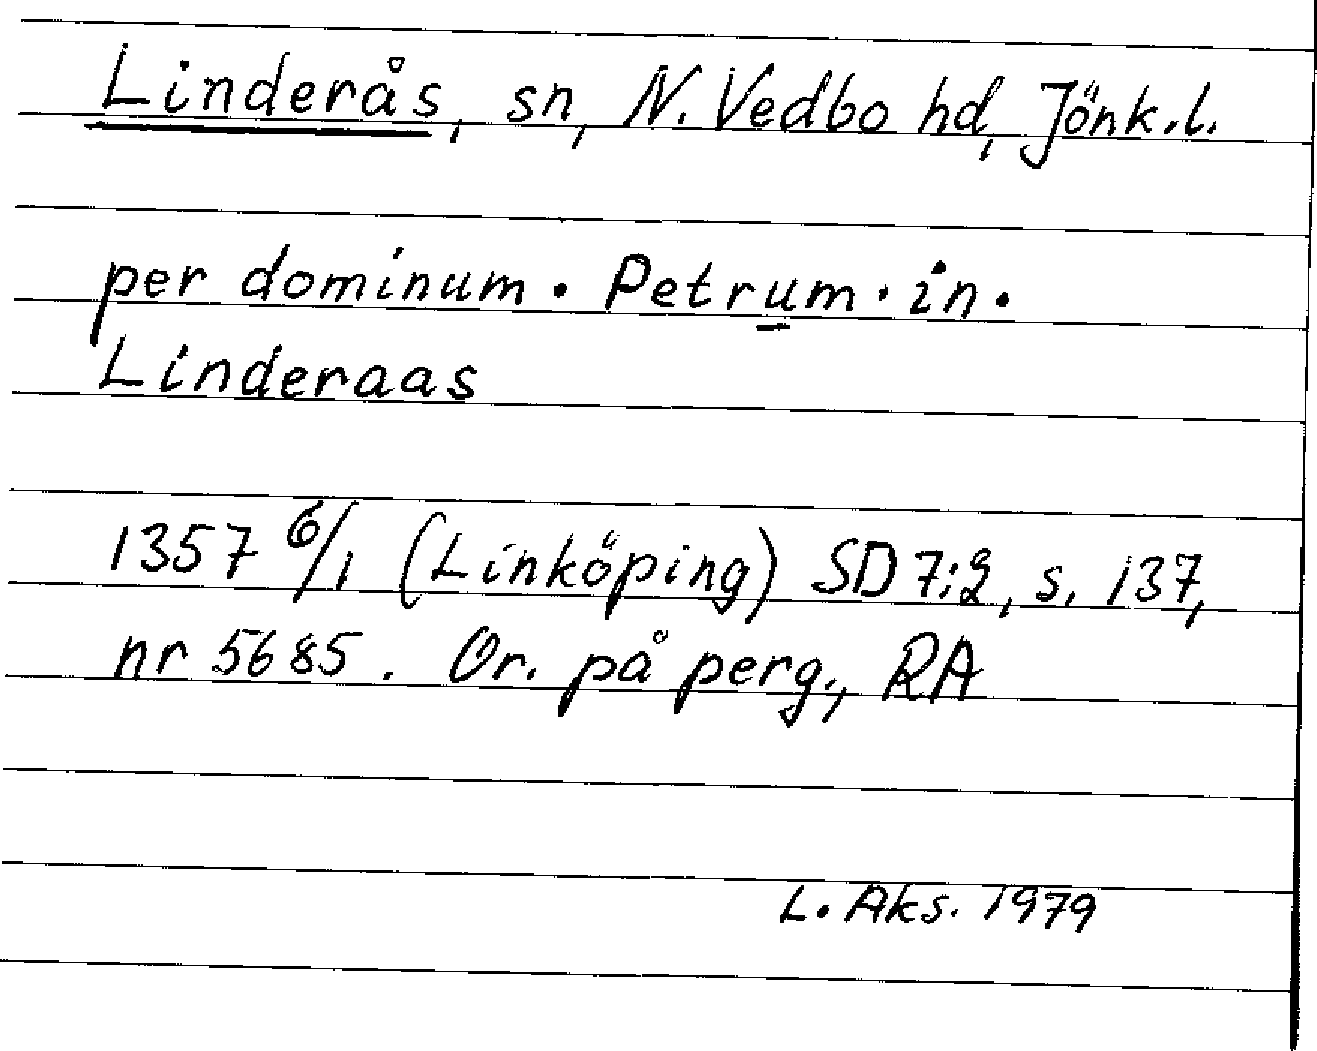 Linderås, sn, N. Vedbo hd, Jönk.l.
per dominum · Petrum · in ·
Linderaas
1357 6/1 (Linköping) SD 7:2, s. 137,
nr 5685. Or. på perg., RA
L. Aks. 1979